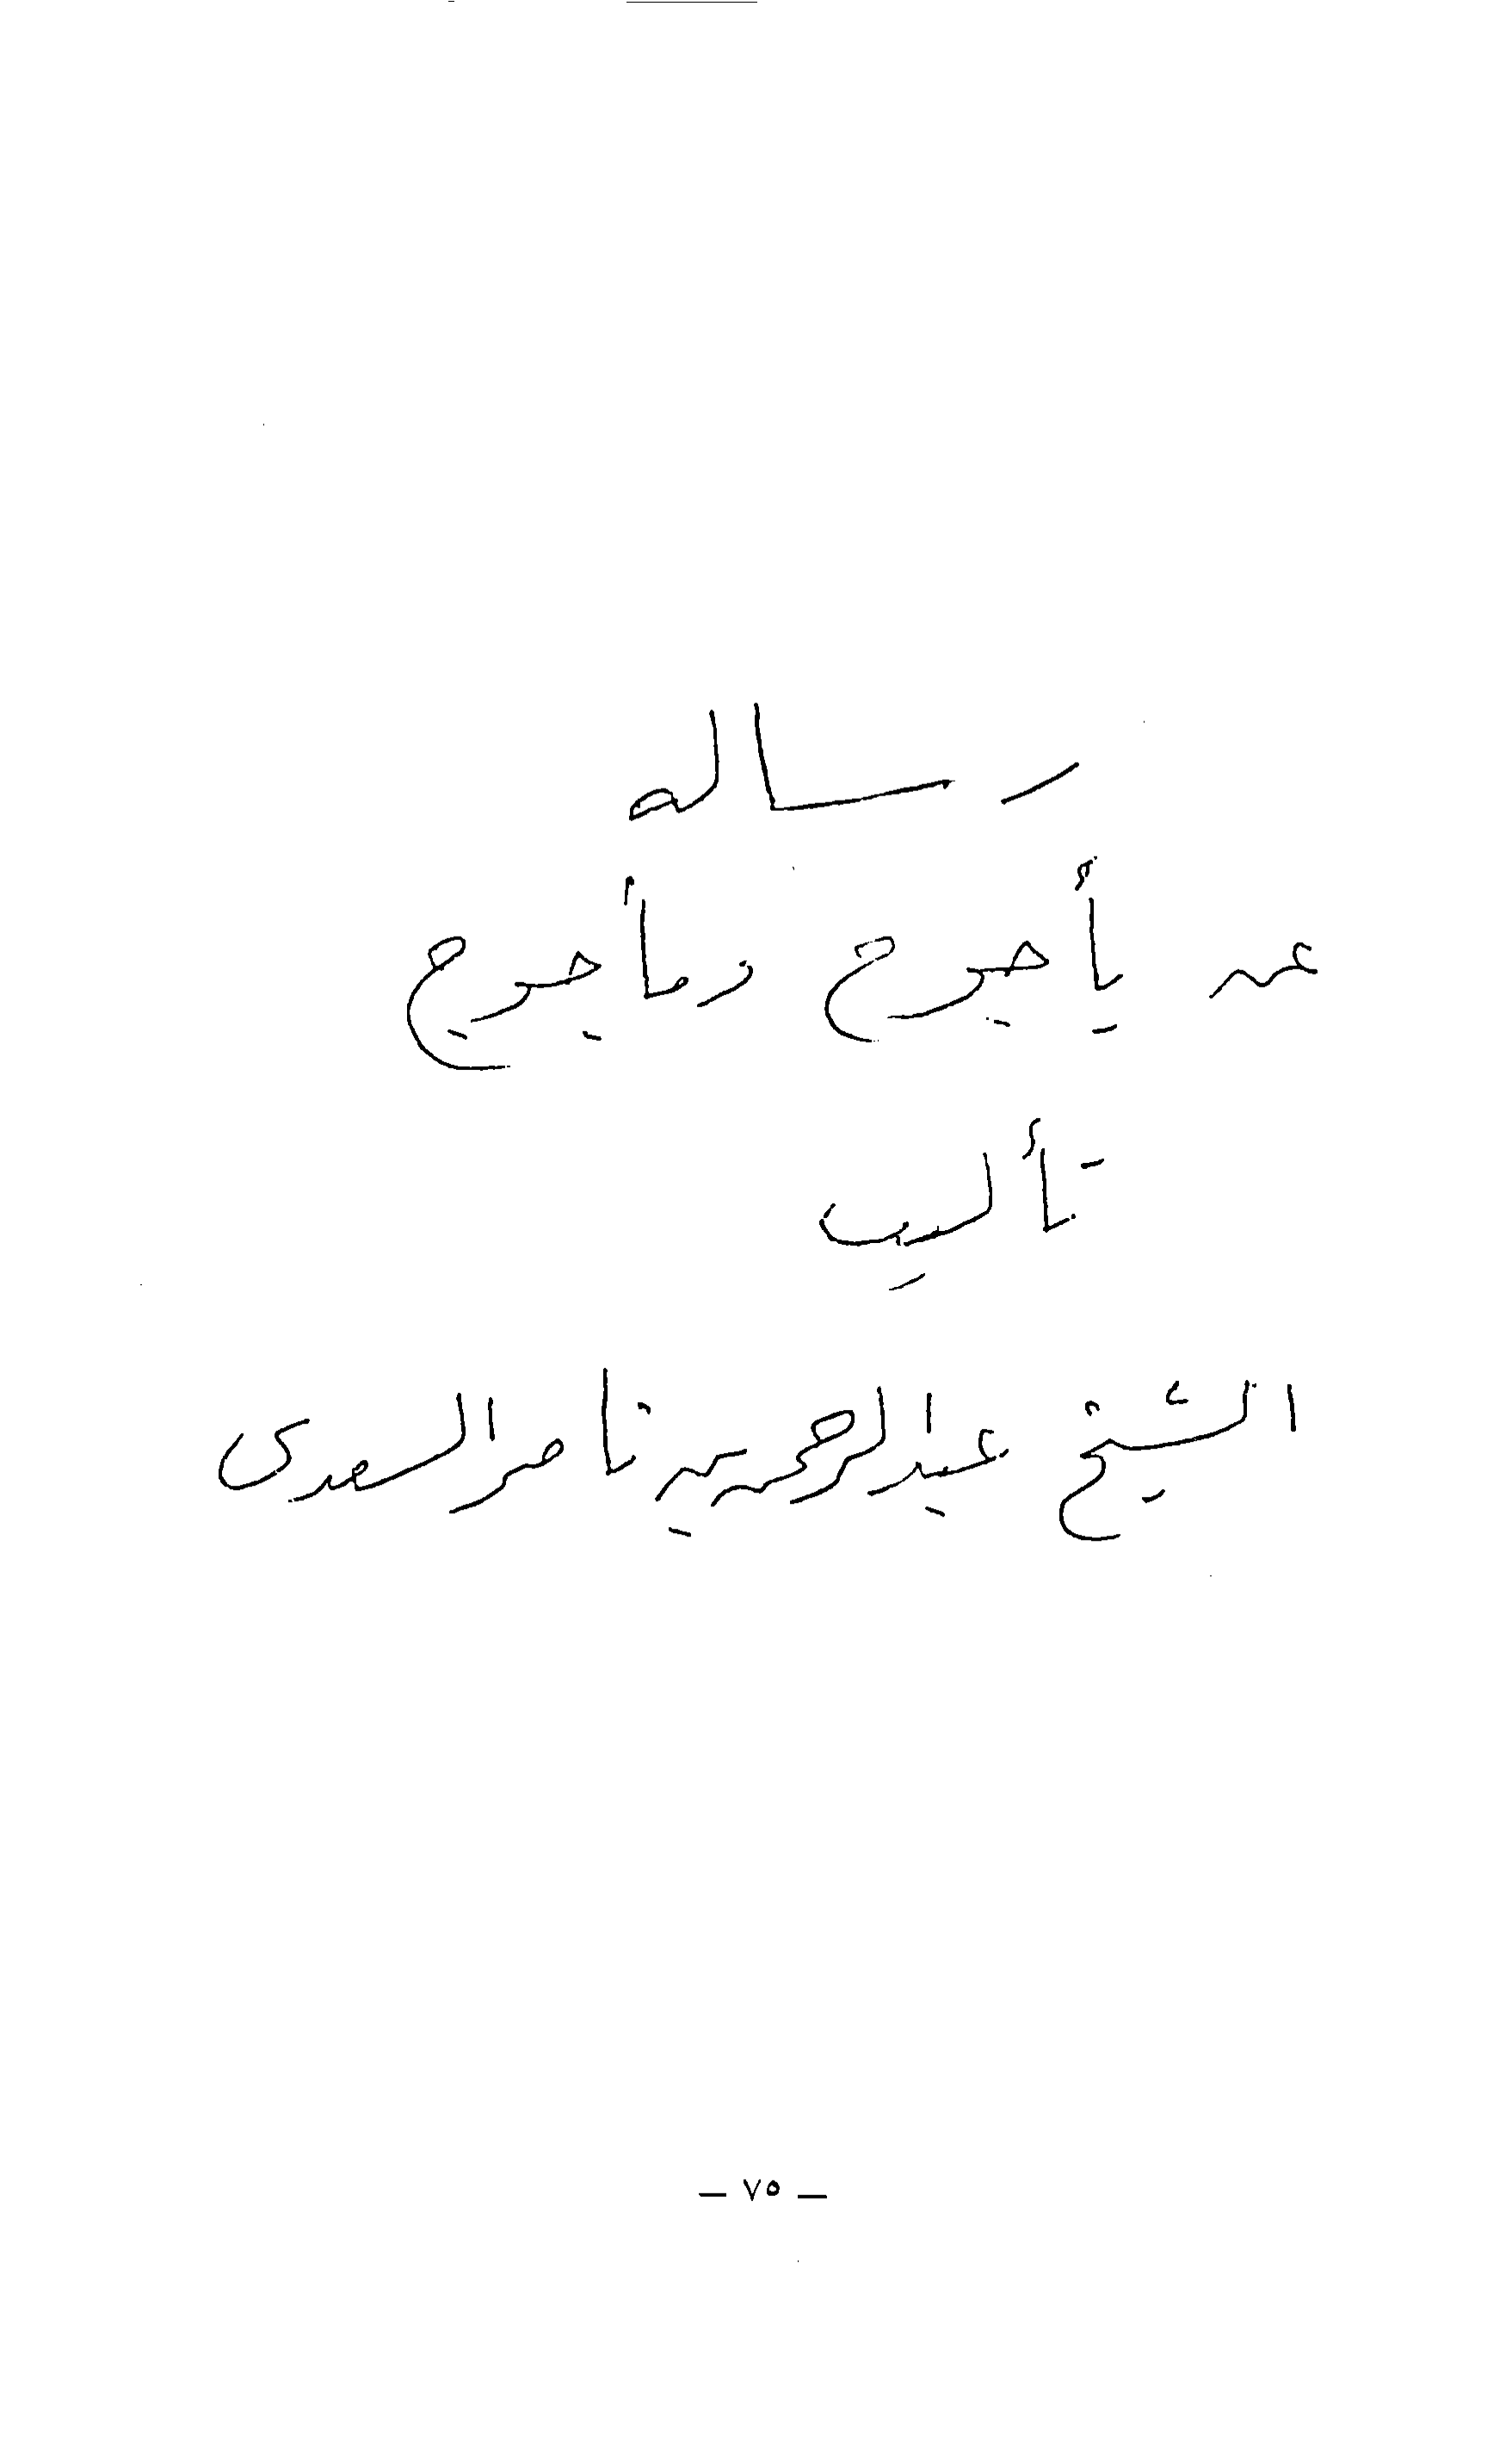 رساله
عن يأجوج ومأجوج
تأليف
الشيخ عبدالرحمن بن ناصر السعدى
— ٧٥ —